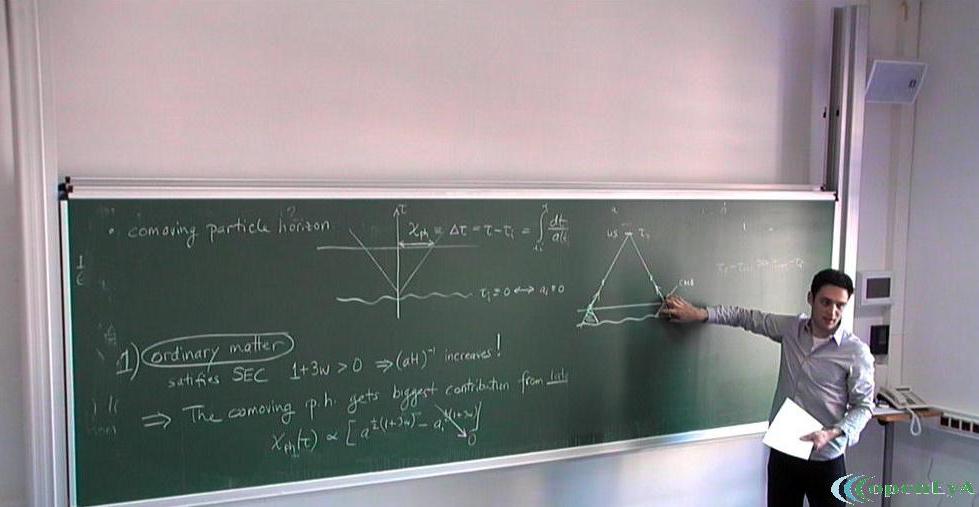 • comoving particle horizon
τ
χ_ph = Δτ = τ - τ_i = ∫ dt/a(t)
τ_i = 0 ↔ a_i = 0
us
CMB
1) ordinary matter
satisfies SEC 1+3w > 0 ⇒ (aH)⁻¹ increases!
⇒ The comoving p.h. gets biggest contribution from late
χ_ph(τ) ∝ [a^½(1+3w) - a_i^½(1+3w)]
0
openEyA